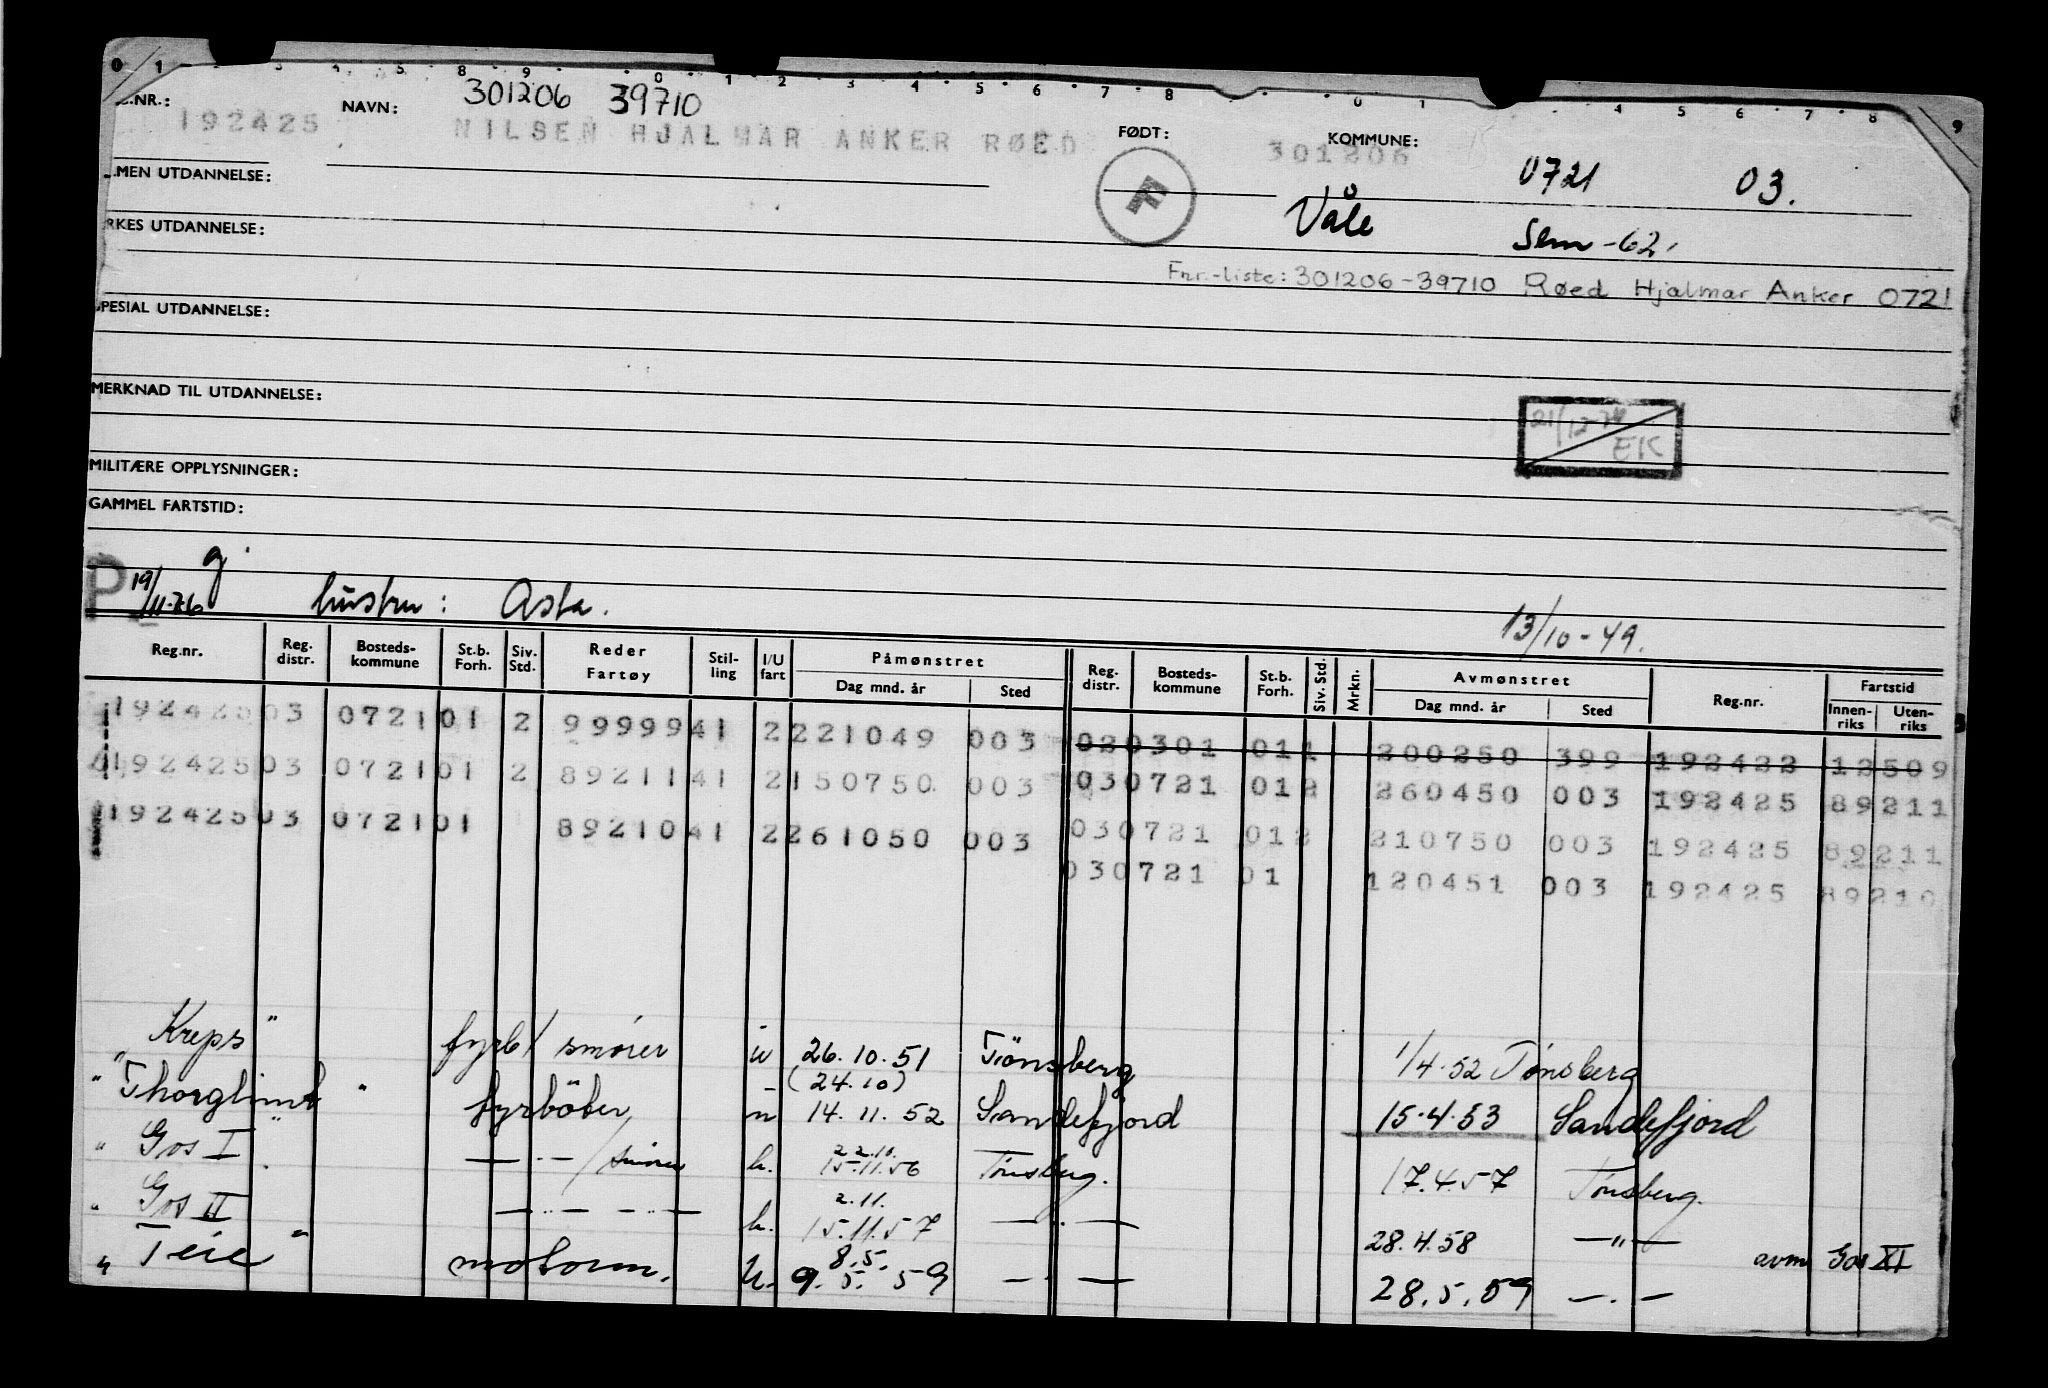 0 1 3 4 5 8 9 0 1 2 3 4 5 6 7 8 0 1 4 5 6 7 8 9
.NR.: 192425 NAVN: 301206 39710
NILSEN HJALMAR ANKER RØED FØDT: 301206 KOMMUNE:
MEN UTDANNELSE: 0721 03.
RKES UTDANNELSE: Våle Sem -62.
Fnr.-liste: 301206-39710 Røed Hjalmar Anker 0721
SPESIAL UTDANNELSE:
MERKNAD TIL UTDANNELSE:
21/12-74 EK
MILITÆRE OPPLYSNINGER:
GAMMEL FARTSTID:
g.
P 19/11-76 hustru: Asta. 13/10-49.
Reg.nr. Reg. distr. Bosteds-kommune St.b. Forh. Siv. Std. Reder Fartøy Stil-ling I/U fart Påmønstret Dag mnd. år Sted Reg. distr. Bosteds-kommune St.b. Forh. Siv. Std. Mrkn. Avmønstret Dag mnd. år Sted Reg.nr. Fartstid Innen-riks Uten-riks
192425 03 0721 01 2 99999 41 2 221049 003 020301 011 200250 399 192422 12509
192425 03 0721 01 2 89211 41 2 150750 003 030721 012 260450 003 192425 89211
192425 03 0721 01 89210 41 2 261050 003 030721 012 210750 003 192425 89211
030721 01 120451 003 192425 89210
"Kreps" fyrb/smører u 26.10.51 Tönsberg 1/4.52 Tønsberg
(24.10)
"Thorglimt" fyrböter, u 14.11.52 Sandefjord 15.4.53 Sandefjord
22.10.
"Gos I" — " — /smører u. 15.11.56 Tønsberg. 17.4.57 Tønsberg.
2.11.
"Gos II — " — — " — u. 15.11.57 — " — 28.4.58 — " — avm Gos XI
8.5.
"Teie" motorm. U. 9.5.59 — " — 28.5.59 — " —